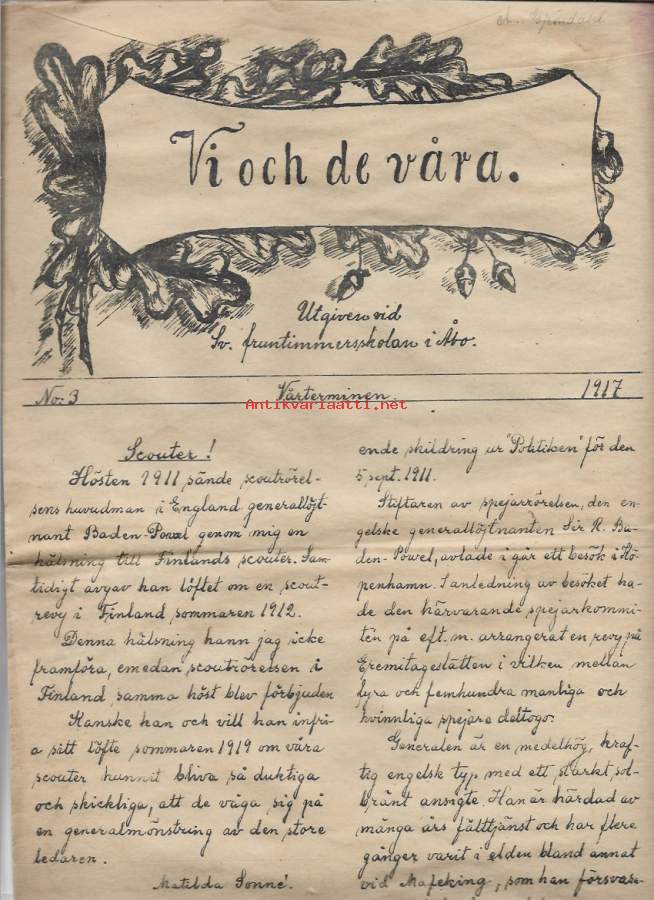 Vi och de våra.
Utgiven vid
Sv. fruntimmersskolan i Åbo.
No: 3 Vårterminen. 1917
Antikvariaatti.net
Scouter!
Hösten 1911 sände scoutrörel-
sens huvudman i England generallöjt-
nant Baden-Powel genom mig en
hälsning till Finlands scouter. Sam-
tidigt avgav han löftet om en scout-
revy i Finland sommaren 1912.
Denna hälsning hann jag icke
framföra, emedan scoutrörelsen i
Finland samma höst blev förbjuden
Kanske han och vill han infri-
a sitt löfte sommaren 1919 om våra
scouter hunnit bliva så duktiga
och skickliga, att de våga sig på
en generalmönstring av den store
ledaren.
Matilda Sonné.
ende skildring ur "Politiken" för den
5 sept. 1911.
Stiftaren av spejarrörelsen, den en-
gelske generallöjtnanten Sir R. Ba-
den-Powel, avlade i går ett besök i Kö-
penhamn. I anledning av besöket ha-
de den härvarande spejarkommi-
tén på eft. m. arrangerat en revy på
Eremitageslätten i vilken mellan
fyra och femhundra manliga och
kvinnliga spejare deltogo.
Generalen är en medelhög, kraf-
tig engelsk typ med ett starkt, sol-
bränt ansigte. Han är härdad av
många års fälttjänst och har flere
gånger varit i elden bland annat
vid Mafeking, som han försvara-